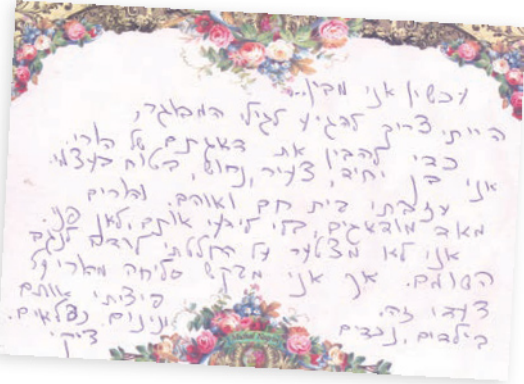 עכשיו אני מבין...
הייתי צריך להגיע לגילי המבוגר,
כדי להבין את דאגתם של הורי.
אני בן יחיד, צעיר, נחוש, בטוח בעצמי.
עזבתי בית חם ואוהב. והורים
מאד מודאגים, בלי ליידע אותם, לאן פני.
אני לא מצטער על החלטתי לרדת לנגב
השומם. אך אני מבקש סליחה מהורי על
צעדי זה. פיציתי אותם
בילדים, נכדים ונינים נפלאים.
ציקי